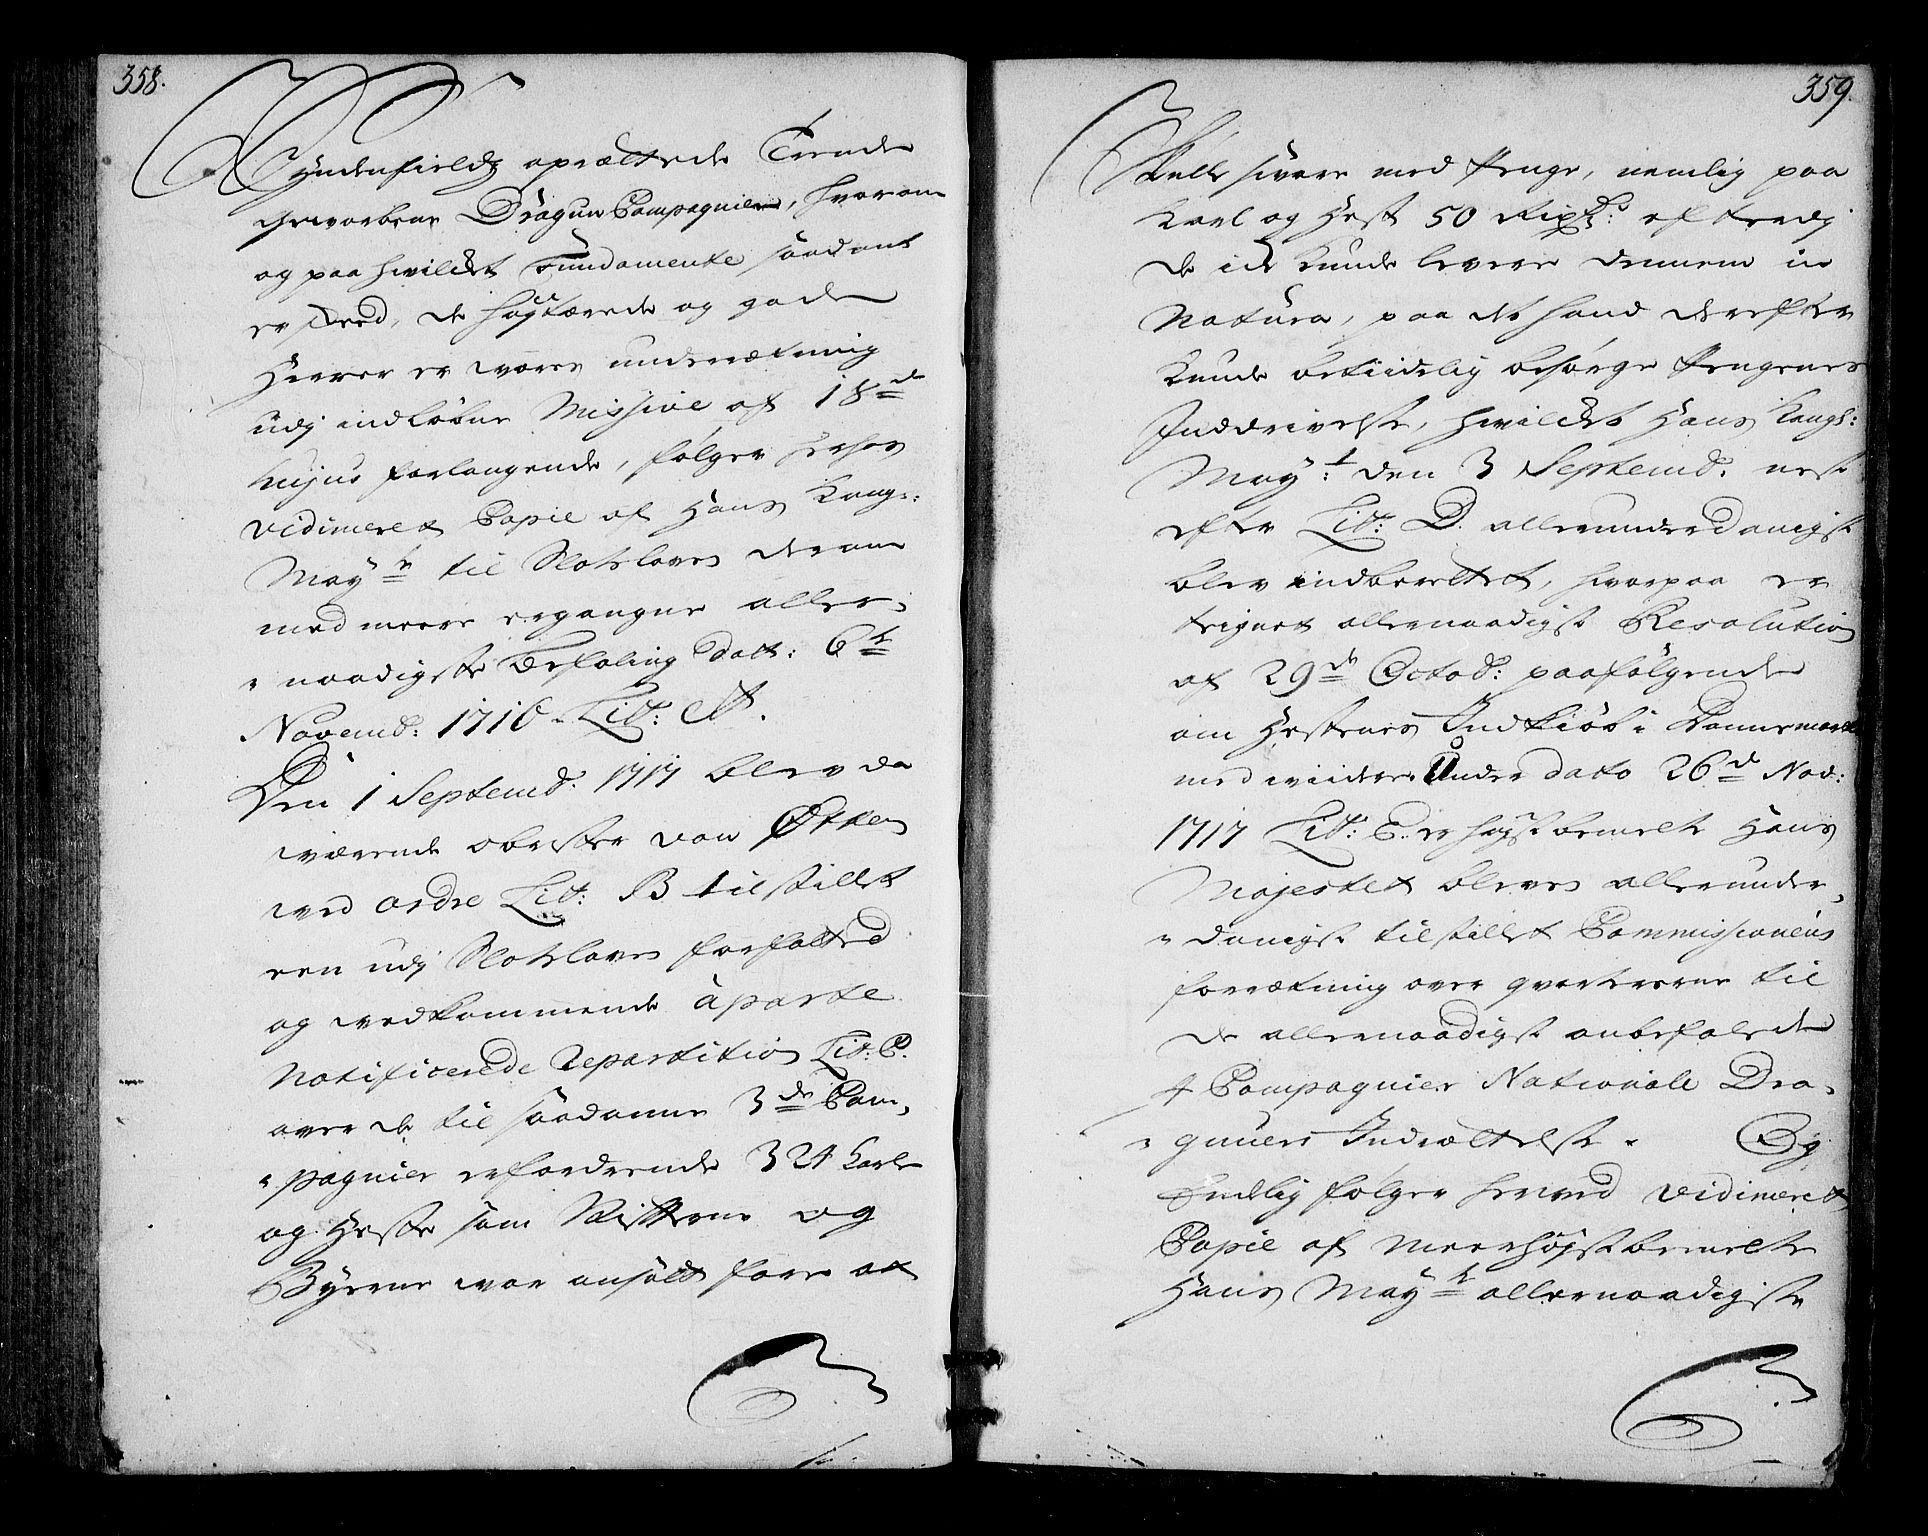 358.
Syndenfields oprættede Trende
hervorbene Dragun Compagnier, hvorom
og paa hvilcket Fundamente saadant
er skeed, de høytærede og gode
Herrer er vores underrætning
udj indløbne Missive af 18de
hujus forlangende, følger herhos
vidimeret Copie af Hans Kongs:
Mayts til Slotsloven derom
med meere ergangne aller-
naadigste Befaling dat: 6te
Novemb: 1716. Lit: A.
Den 1 Septemb: 1717 blev da
værende obrister von Øtken
ved ordre Lit: B tilstillet
een udj Slotsloven forfatted
og vedkommende àparte
Notificerede Repartition Lit: C.
over de til saadanne 3de Com-
pagnier erfordrende 324 Karle
og Heste som Ritterne og
Byerne var ansatt fore at
359.
Skulle svare med Penge, nemlig paa
Karl og Hest 50 Rixdr: eftersom
de icke kunde levere dennem in
Natura, paa det hand derefter
kunde betiidelig besørge Pengenes
Inddrivelse, hvilcket Hans Kongl:
Mayt: den 3 Septemb. nest
efter Lit: D. allerunderdanigst
blev indberettet, hvorpaa er
teignet allernaadigst Resolution
af 29de Octob: paafølgende
om Hestenes Indkiøb i Dannemark
med viidere. Under dato 26de Nov:
1717 Lit: E. er højstbemelte Hans
Majestet bleven allerunder-
danigst tilstillet Commissionens
forrætning over qvarterene til
de allernaadigst anbefalede
4 Compagnier Nationale Dra-
guners Indrættelse. Og
Endelig følger herved vidimeret
Copie af meerhøjstbemelte
Hans Mayts allernaadigste